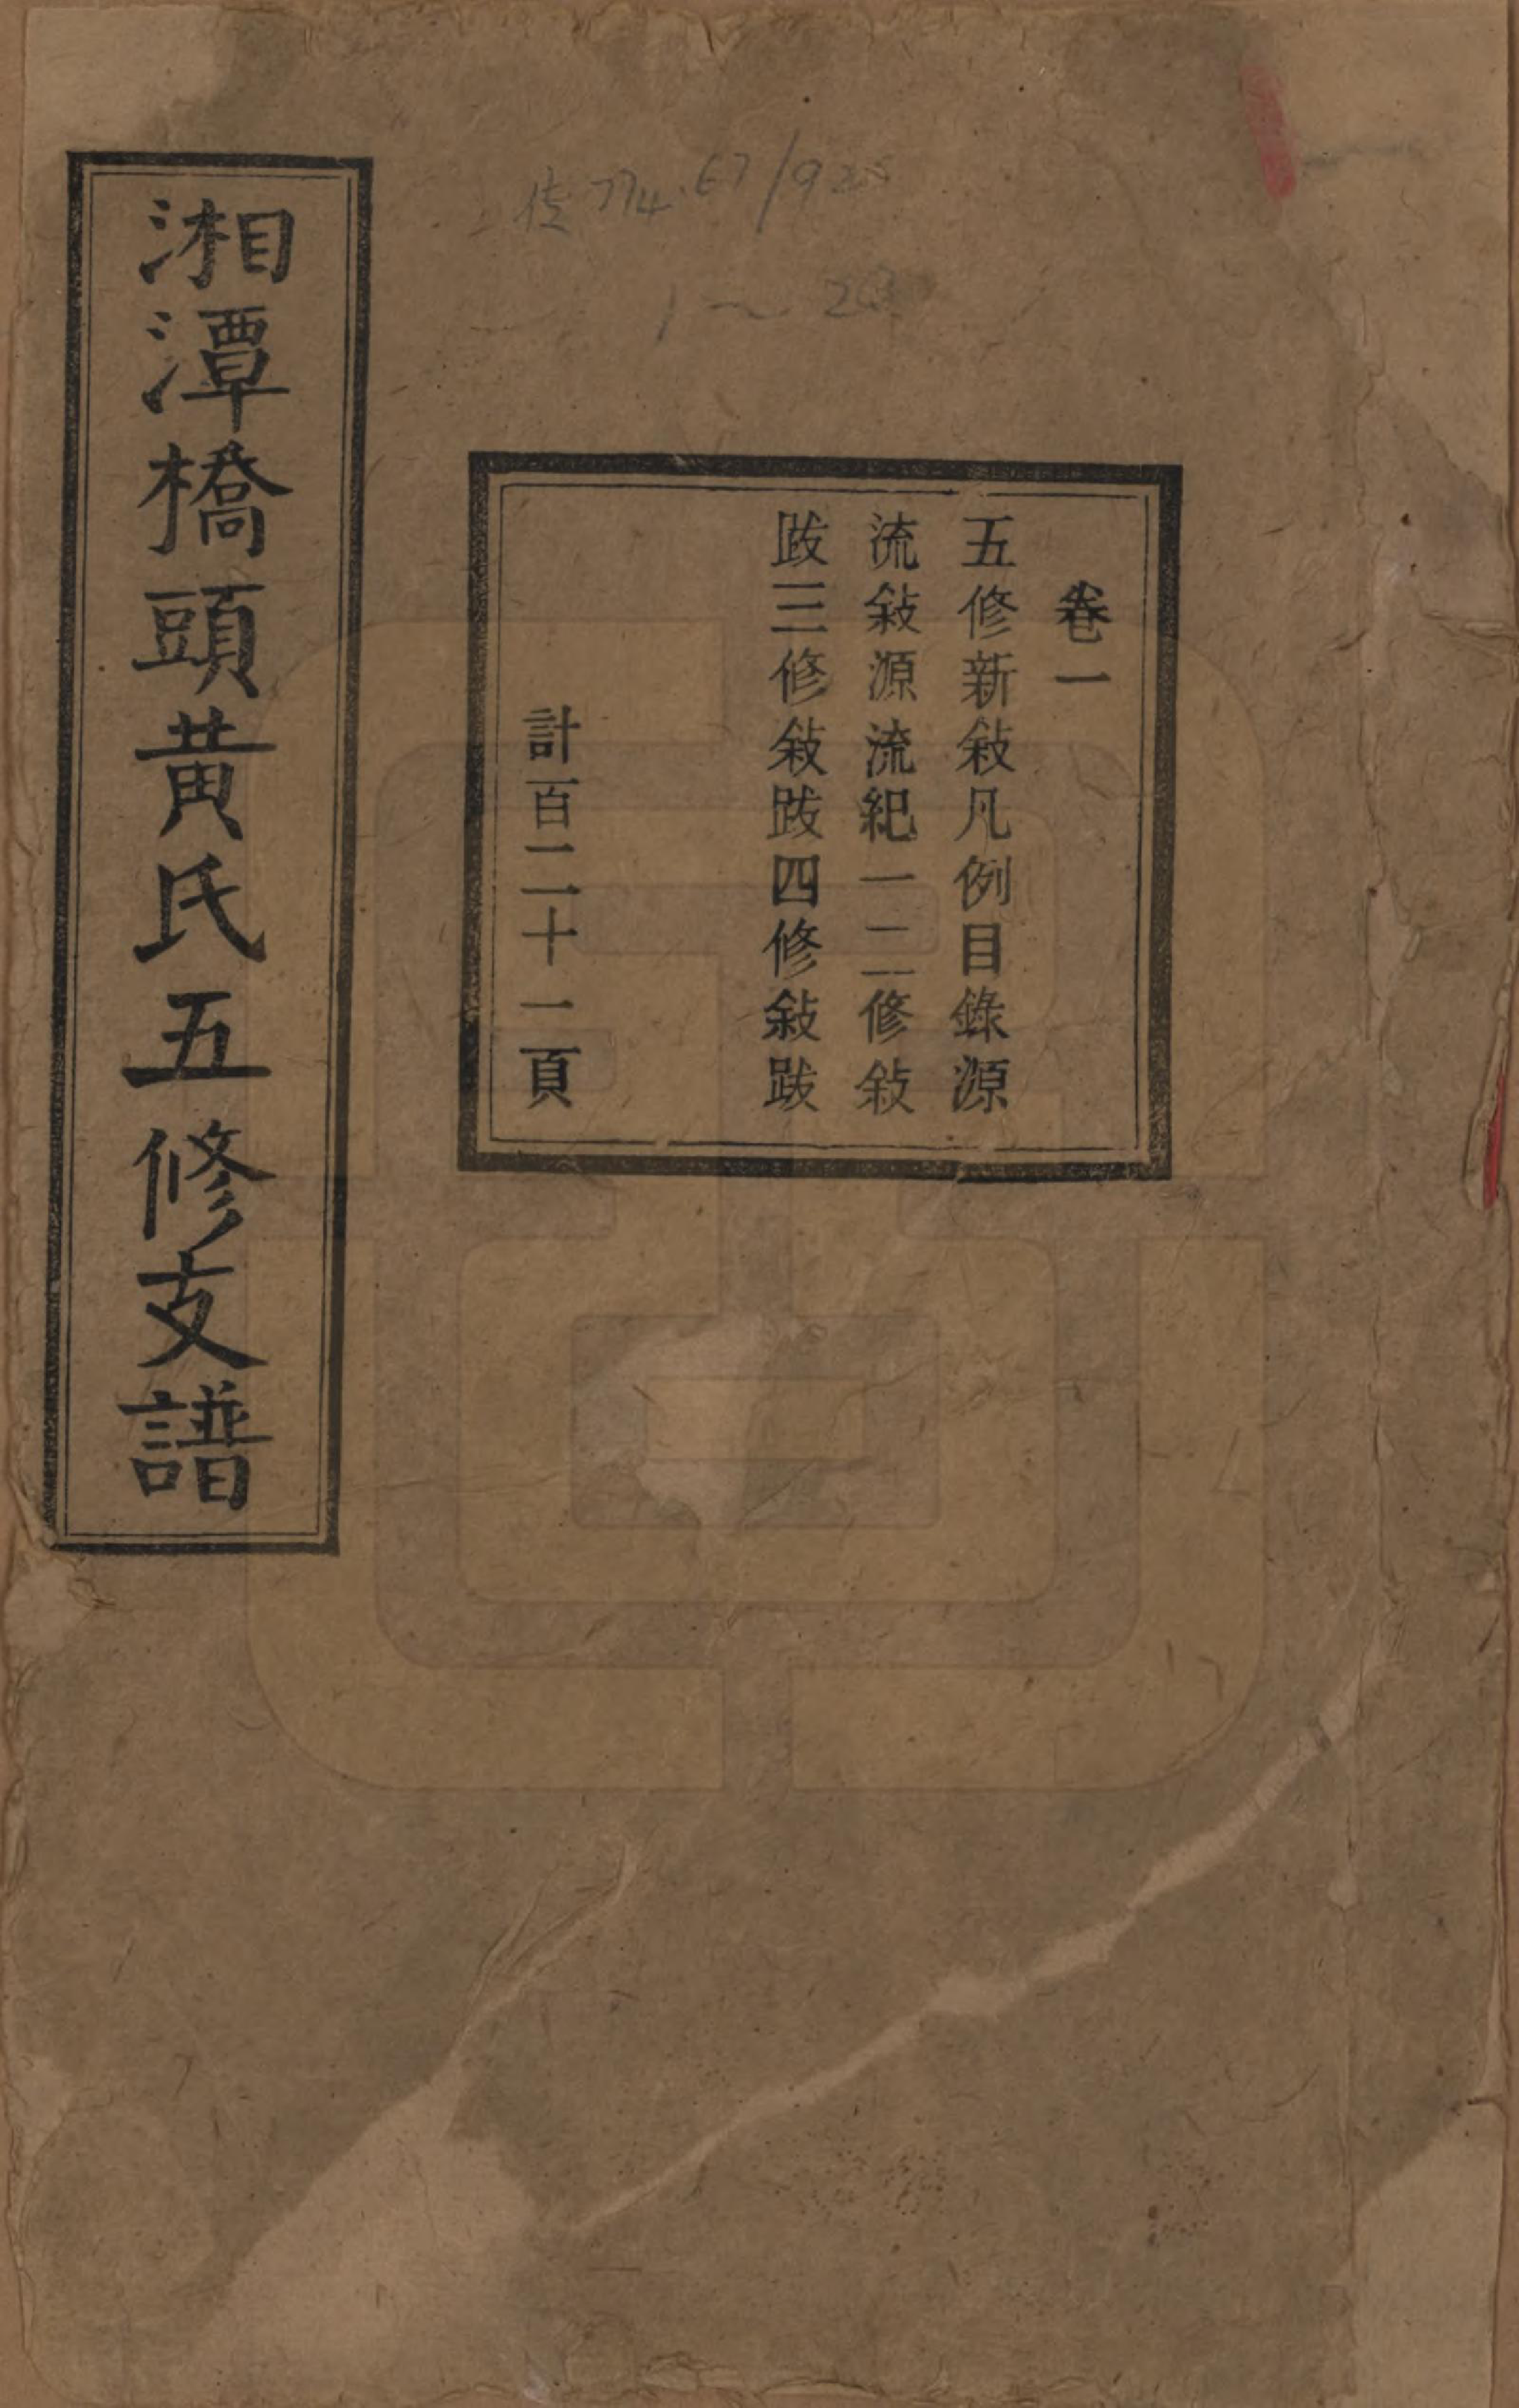 卷一
五修新敍凡例目錄源
流敍源流紀一二修敍
跋三修敍跋四修敍跋
計百二十一頁
湘潭橋頭黃氏五修支譜
传774.67/925
1~20